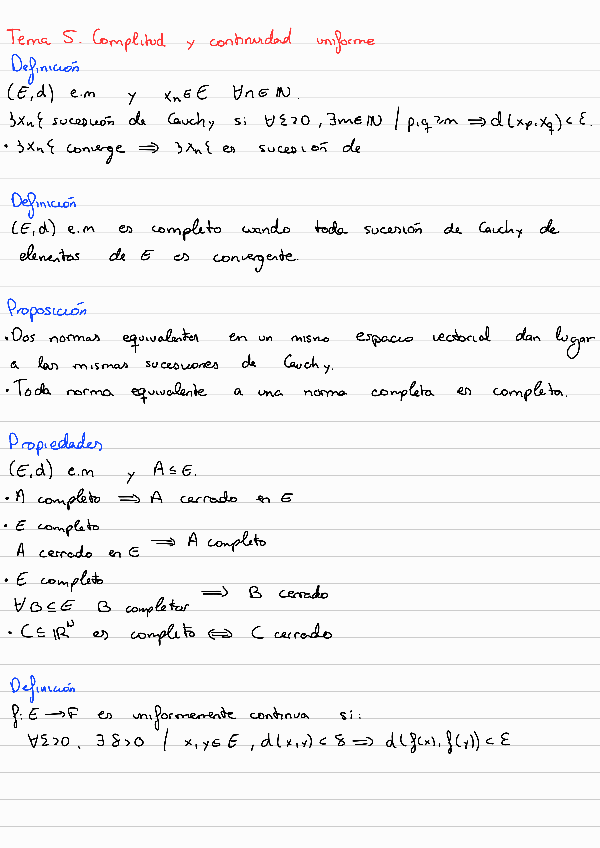 Tema 5. Complitud y continuidad uniforme
Definición
(E,d) e.m y xₙ ∈ E ∀n ∈ ℕ.
}xₙ{ sucesión de Cauchy si ∀ε>0, ∃m∈ℕ / p,q ≥ m ⟹ d(xp,xq) < ε.
• }xₙ{ converge ⟹ }xₙ{ es sucesión de
Definición
(E,d) e.m es completo cuando toda sucesión de Cauchy de
elementos de E es convergente.
Proposición
• Dos normas equivalentes en un mismo espacio vectorial dan lugar
a las mismas sucesiones de Cauchy.
• Toda norma equivalente a una norma completa es completa.
Propiedades
(E,d) e.m y A ⊆ E.
• A completo ⟹ A cerrado en E
• E completo
A cerrado en E ⟹ A completo
• E completo
∀B ⊆ E B completar ⟹ B cerrado
• C ⊆ ℝᴺ es completo ⟺ C cerrado
Definición
f: E → F es uniformemente continua si:
∀ε>0, ∃δ>0 / x,y ∈ E, d(x,y) < δ ⟹ d(f(x), f(y)) < ε